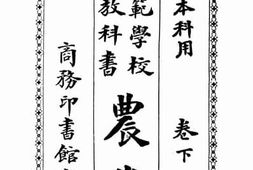 本科用
卷下
範學校
教科書
農
商務印書館